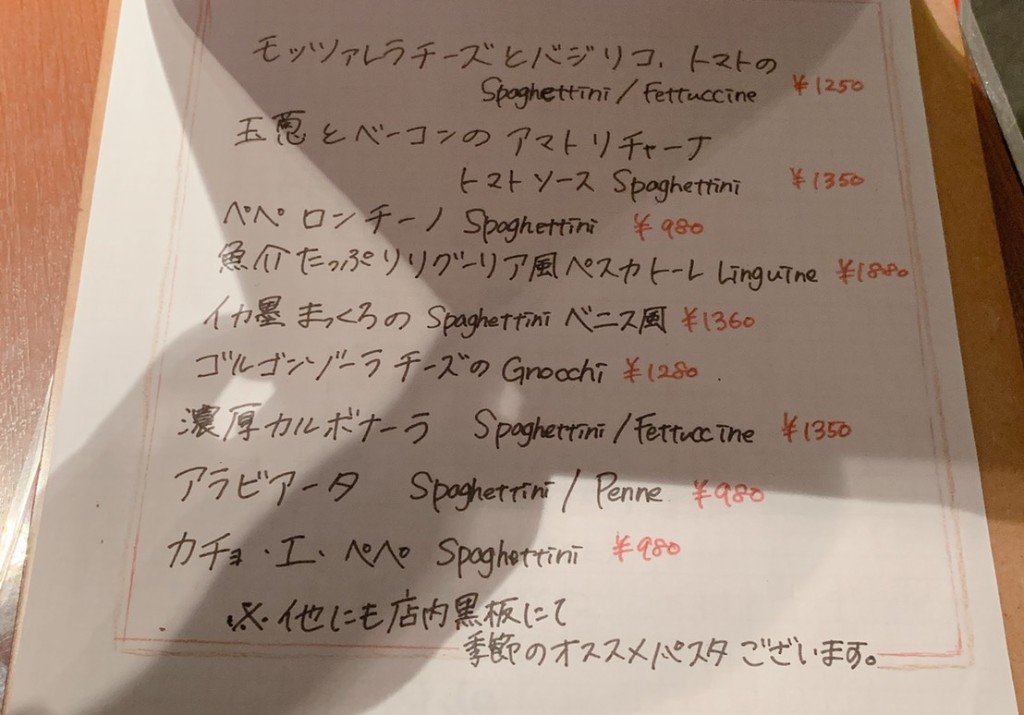 モッツァレラチーズとバジリコ、トマトの
Spaghettini / Fettuccine ¥1250
玉葱とベーコンのアマトリチャーナ
トマトソース Spaghettini ¥1350
ペペロンチーノ Spaghettini ¥980
魚介たっぷりリグーリア風ペスカトーレ Linguine ¥1880
イカ墨まっくろの Spaghettini ベニス風 ¥1360
ゴルゴンゾーラチーズの Gnocchi ¥1280
濃厚カルボナーラ Spaghettini / Fettuccine ¥1350
アラビアータ Spaghettini / Penne ¥980
カチョ・エ・ペペ Spaghettini ¥980
※他にも店内黒板にて
季節のオススメパスタございます。